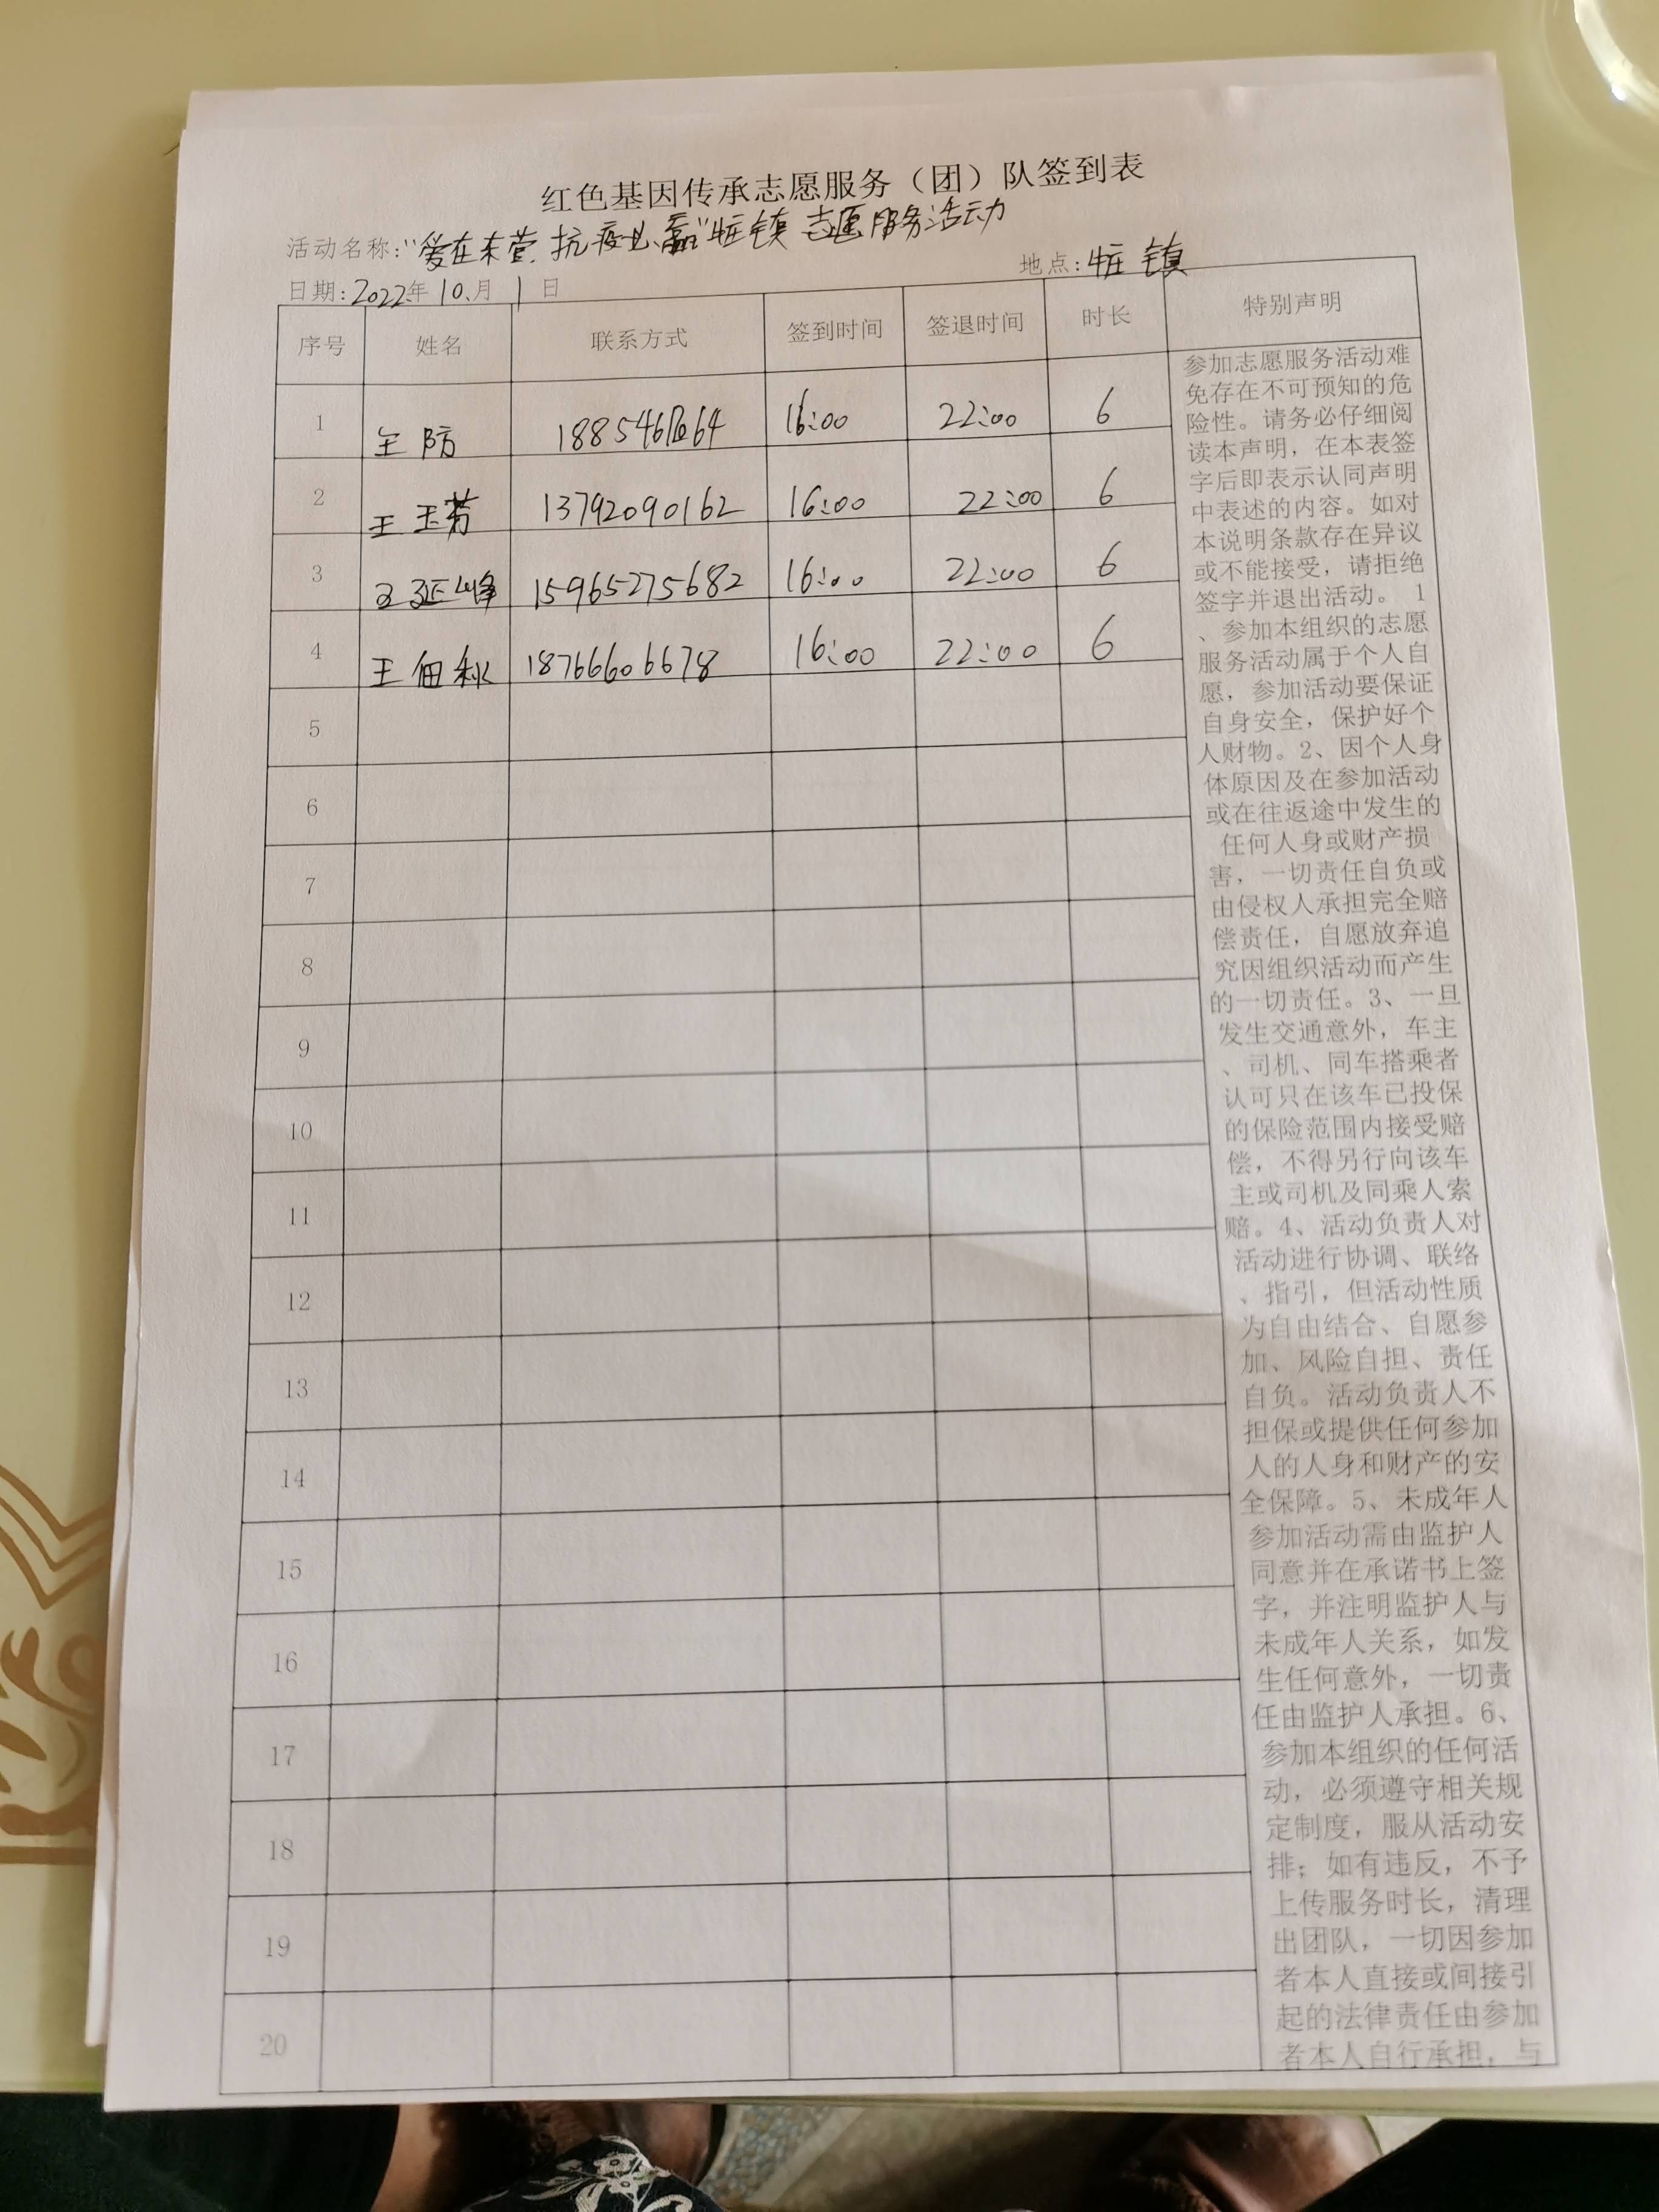 红色基因传承志愿服务（团）队签到表
活动名称：“爱在东营，抗疫必赢”牛庄镇志愿服务活动
日期：2022年10月1日 地点：牛庄镇
序号 姓名 联系方式 签到时间 签退时间 时长 特别声明
1 王防 16:00 22:00 6
2 王玉芳 13792090162 16:00 22:00 6
3 王延峰 15965275682 16:00 22:00 6
4 王佃秋 18766606678 16:00 22:00 6
5
6
7
8
9
10
11
12
13
14
15
16
17
18
19
20
参加志愿服务活动难
免存在不可预知的危
险性。请务必仔细阅
读本声明，在本表签
字后即表示认同声明
中表述的内容。如对
本说明条款存在异议
或不能接受，请拒绝
签字并退出活动。 1
、参加本组织的志愿
服务活动属于个人自
愿，参加活动要保证
自身安全，保护好个
人财物。2、因个人身
体原因及在参加活动
或在往返途中发生的
任何人身或财产损
害，一切责任自负或
由侵权人承担完全赔
偿责任，自愿放弃追
究因组织活动而产生
的一切责任。3、一旦
发生交通意外，车主
、司机、同车搭乘者
认可只在该车已投保
的保险范围内接受赔
偿，不得另行向该车
主或司机及同乘人索
赔。4、活动负责人对
活动进行协调、联络
、指引，但活动性质
为自由结合、自愿参
加、风险自担、责任
自负。活动负责人不
担保或提供任何参加
人的人身和财产的安
全保障。5、未成年人
参加活动需由监护人
同意并在承诺书上签
字，并注明监护人与
未成年人关系，如发
生任何意外，一切责
任由监护人承担。6、
参加本组织的任何活
动，必须遵守相关规
定制度，服从活动安
排；如有违反，不予
上传服务时长，清理
出团队，一切因参加
者本人直接或间接引
起的法律责任由参加
者本人自行承担，与